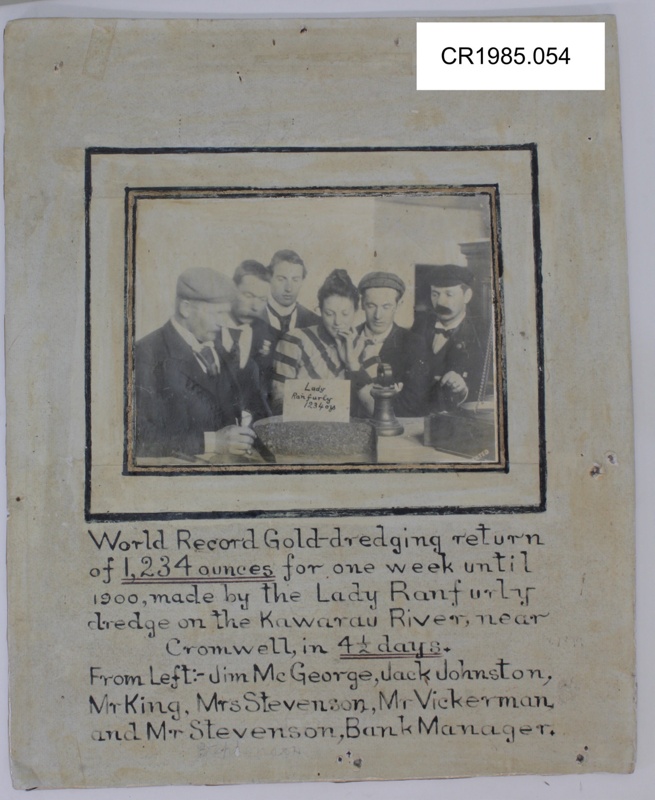 CR1985.054
Lady
Ranfurly
1234 ozs
World Record Gold-dredging return
of 1,234 ounces for one week until
1900, made by the Lady Ranfurly
dredge on the Kawarau River, near
Cromwell, in 4½ days.
From Left:- Jim McGeorge, Jack Johnston,
Mr King, Mrs Stevenson, Mr Vickerman,
and Mr Stevenson, Bank Manager.